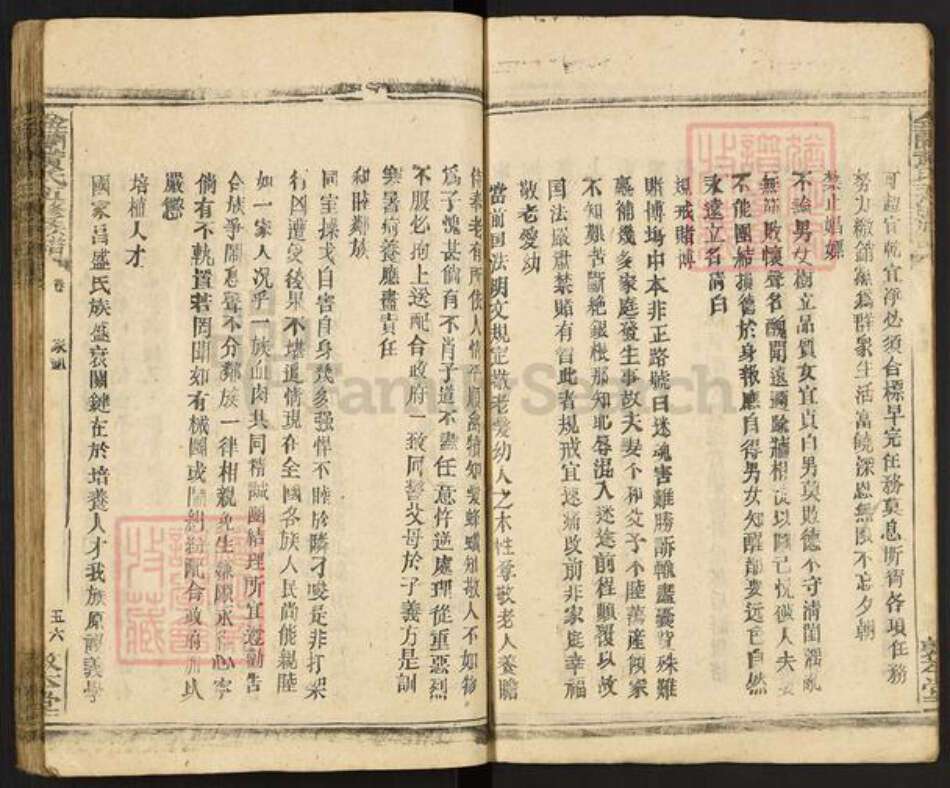 可超官乾宜淨必須合標早完任務莫息昕宵各項任務
努力繳銷無為群衆生活富饒深恩無限不忘夕朝
禁止娼嫖
不論男女樹立品質女宜貞白男莫敗德不守清閨淫亂
無節敗懷聲名醜聞遠邇踰牆相從以隨己悅彼人夫妻
不能團結損德於身報應自得男女知醒都要远色自然
永遠立名清白
規戒賭博
賭博場中本非正路號曰迷魂害難勝訴輸盡囊貲殊難
裹補幾多家庭發生事故夫妻不和父子不陸蕩產傾家
不知艱苦斷絕銀根那知耻辱混入迷途前程顛覆以故
国法嚴肅禁賭有習此者規戒宜速痛改前非家庭幸福
敬老愛幼
當前国法明文規定敬老愛幼人之本性尊敬老人養贍
侍奉老有所依人情乎順禽犢知愛蜂蟻知敬人不如物
爲子愧甚倘有不肖子道不盡任意忤逆處理從重惡烈
不服必拘上送配合政府一致同警父母於子義方是訓
寒暑病養應盡責任
和睦鄰族
同室操戈自害自身幾多强悍不睦於隣刁唆是非打架
行凶遭受後果不堪道情現在全國各族人民尚能親陸
如一家人况乎一族血肉共同精誠團結理所宜遵勸告
合族爭鬧惡聲不分鄰族一律相親免生嫌隙永得心寧
倘有不軌置若罔聞如有械鬭或鬧糾紛配合政府加以
嚴懲
培植人才
國家昌盛氏族盛衰關鍵在於培養人才我族原設義學
金蘭黃氏五修族譜
卷
家訓
五六
敦本堂